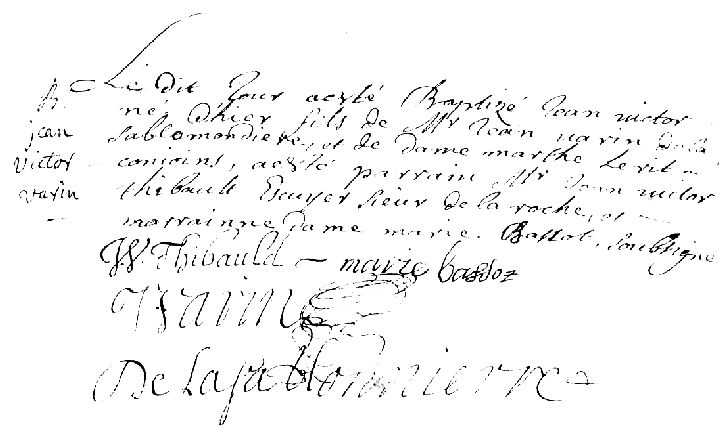 B.
jean
victor
varin
Le dit Jour a esté Baptizé Jean victor
né d'hier fils de Mr Jean varin de la
Sablonndiere, et de dame marthe Le
conjoins, a esté parrain, Mr Jean victor
Thibault Escuyer Sieur de la roche, et
marrainne dame marie Bassot, Soubsigné
Thibauld marie bassoz
Varin
De La